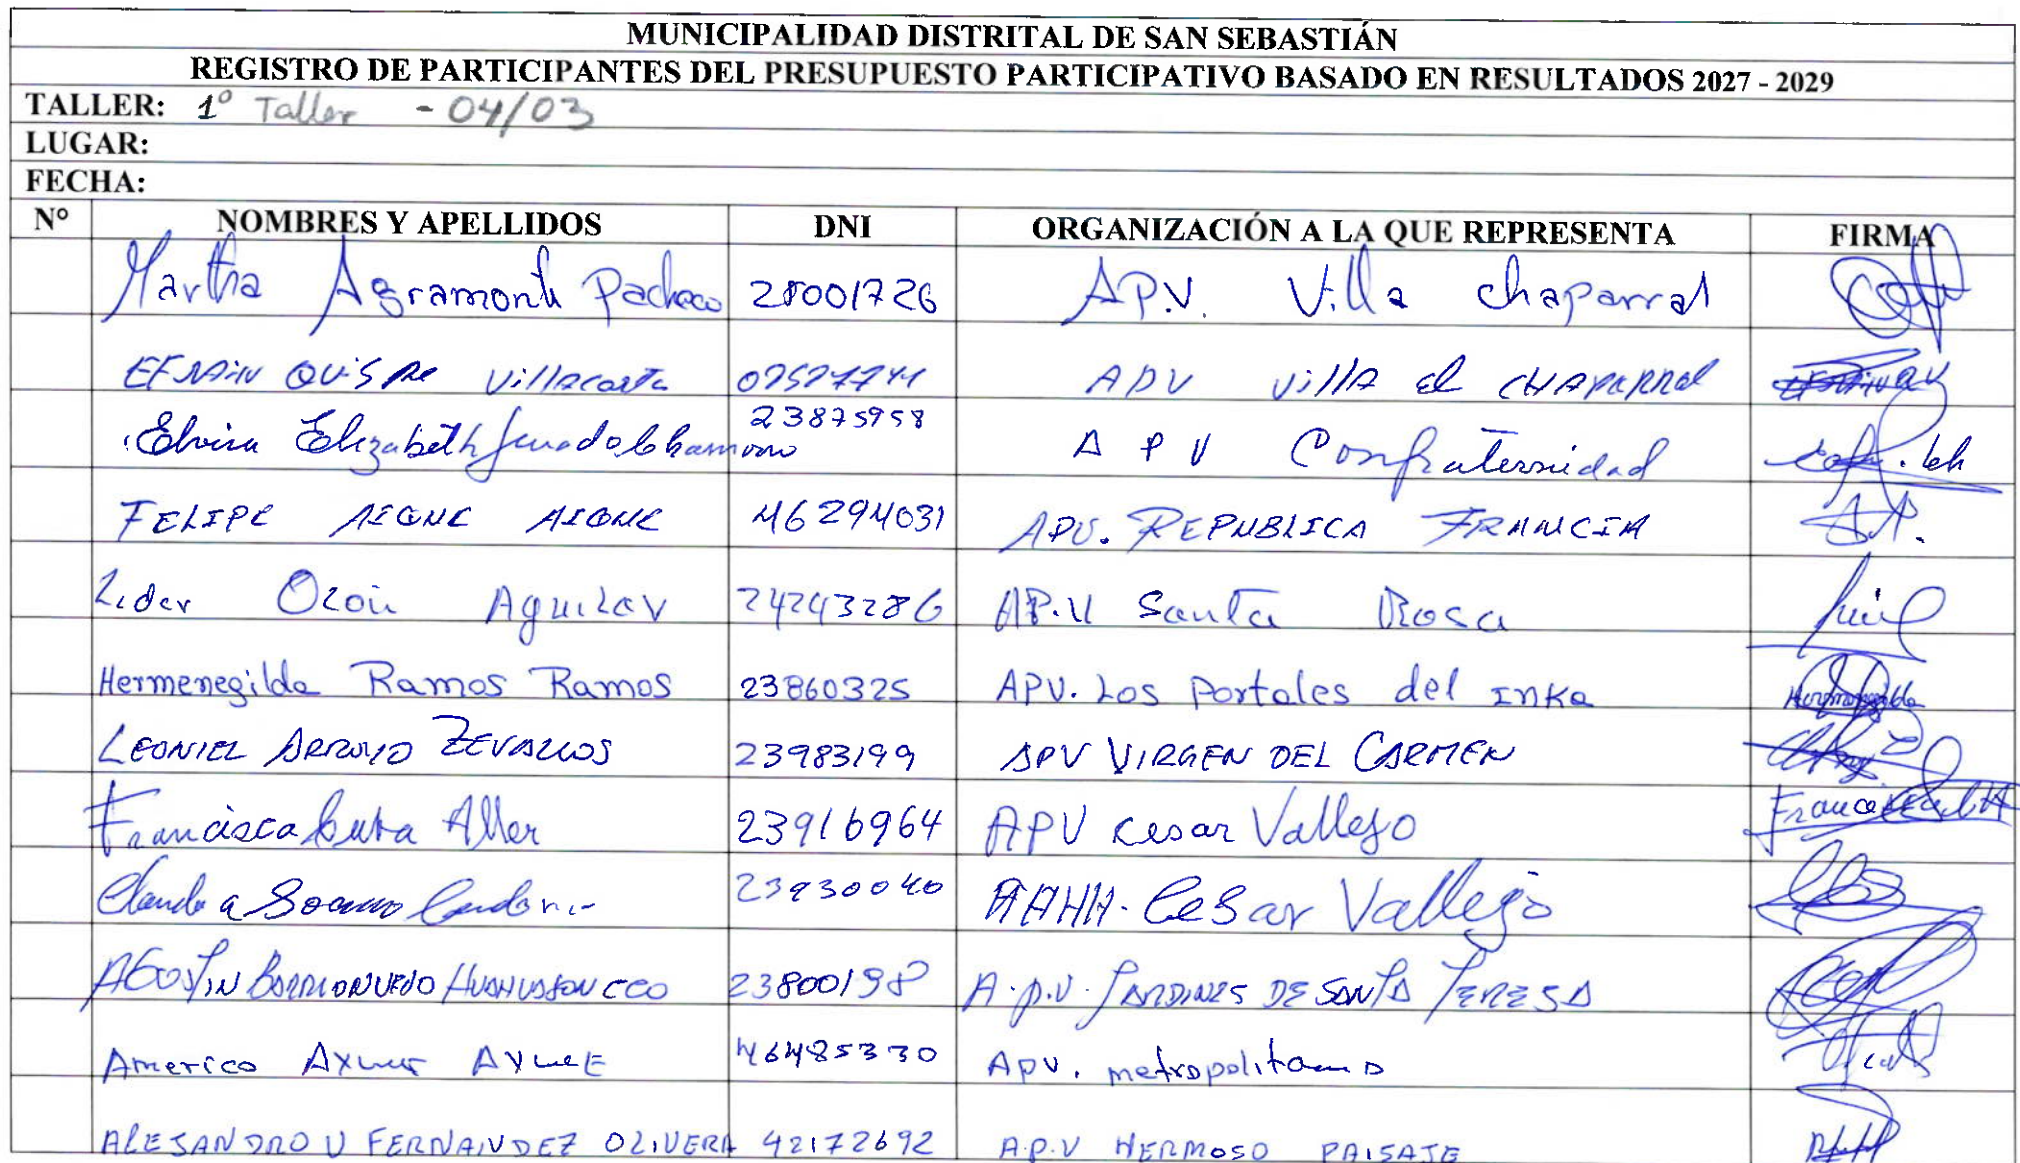 MUNICIPALIDAD DISTRITAL DE SAN SEBASTIÁN
REGISTRO DE PARTICIPANTES DEL PRESUPUESTO PARTICIPATIVO BASADO EN RESULTADOS 2027 - 2029
TALLER: 1º Taller - 04/03
LUGAR:
FECHA:
Nº NOMBRES Y APELLIDOS DNI ORGANIZACIÓN A LA QUE REPRESENTA FIRMA
Martha Agramonte Pacheco 28001726 AP.V. Villa chaparral
EFRAIN QUISPE Villacorta APV villA el CHAPARRAL
Elvira Elizabeth 23875958 A P V Confraternidad
FELIPE 46294031 APV. REPUBLICA FRANCIA
Lider Aguilar 24243286 AP.V Santa Rosa
Hermenegilda Ramos Ramos 23860325 APV. Los Portales del Inka Hermenegilda
LEONIEL ARROYO ZEVALLOS 23983199 APV VIRGEN DEL CARMEN
Francisca 23916964 APV Cesar Vallejo
23930040 AAHH. CeSar Vallejo
AGOSTIN BARRIONUEVO 23800198 A.P.V. JARDINES DE SANTA TERESA
Americo 46485330 APV. metropolitano
ALESANDRO V FERNANDEZ OLIVERA 42172692 A.P.V HERMOSO PAISAJE